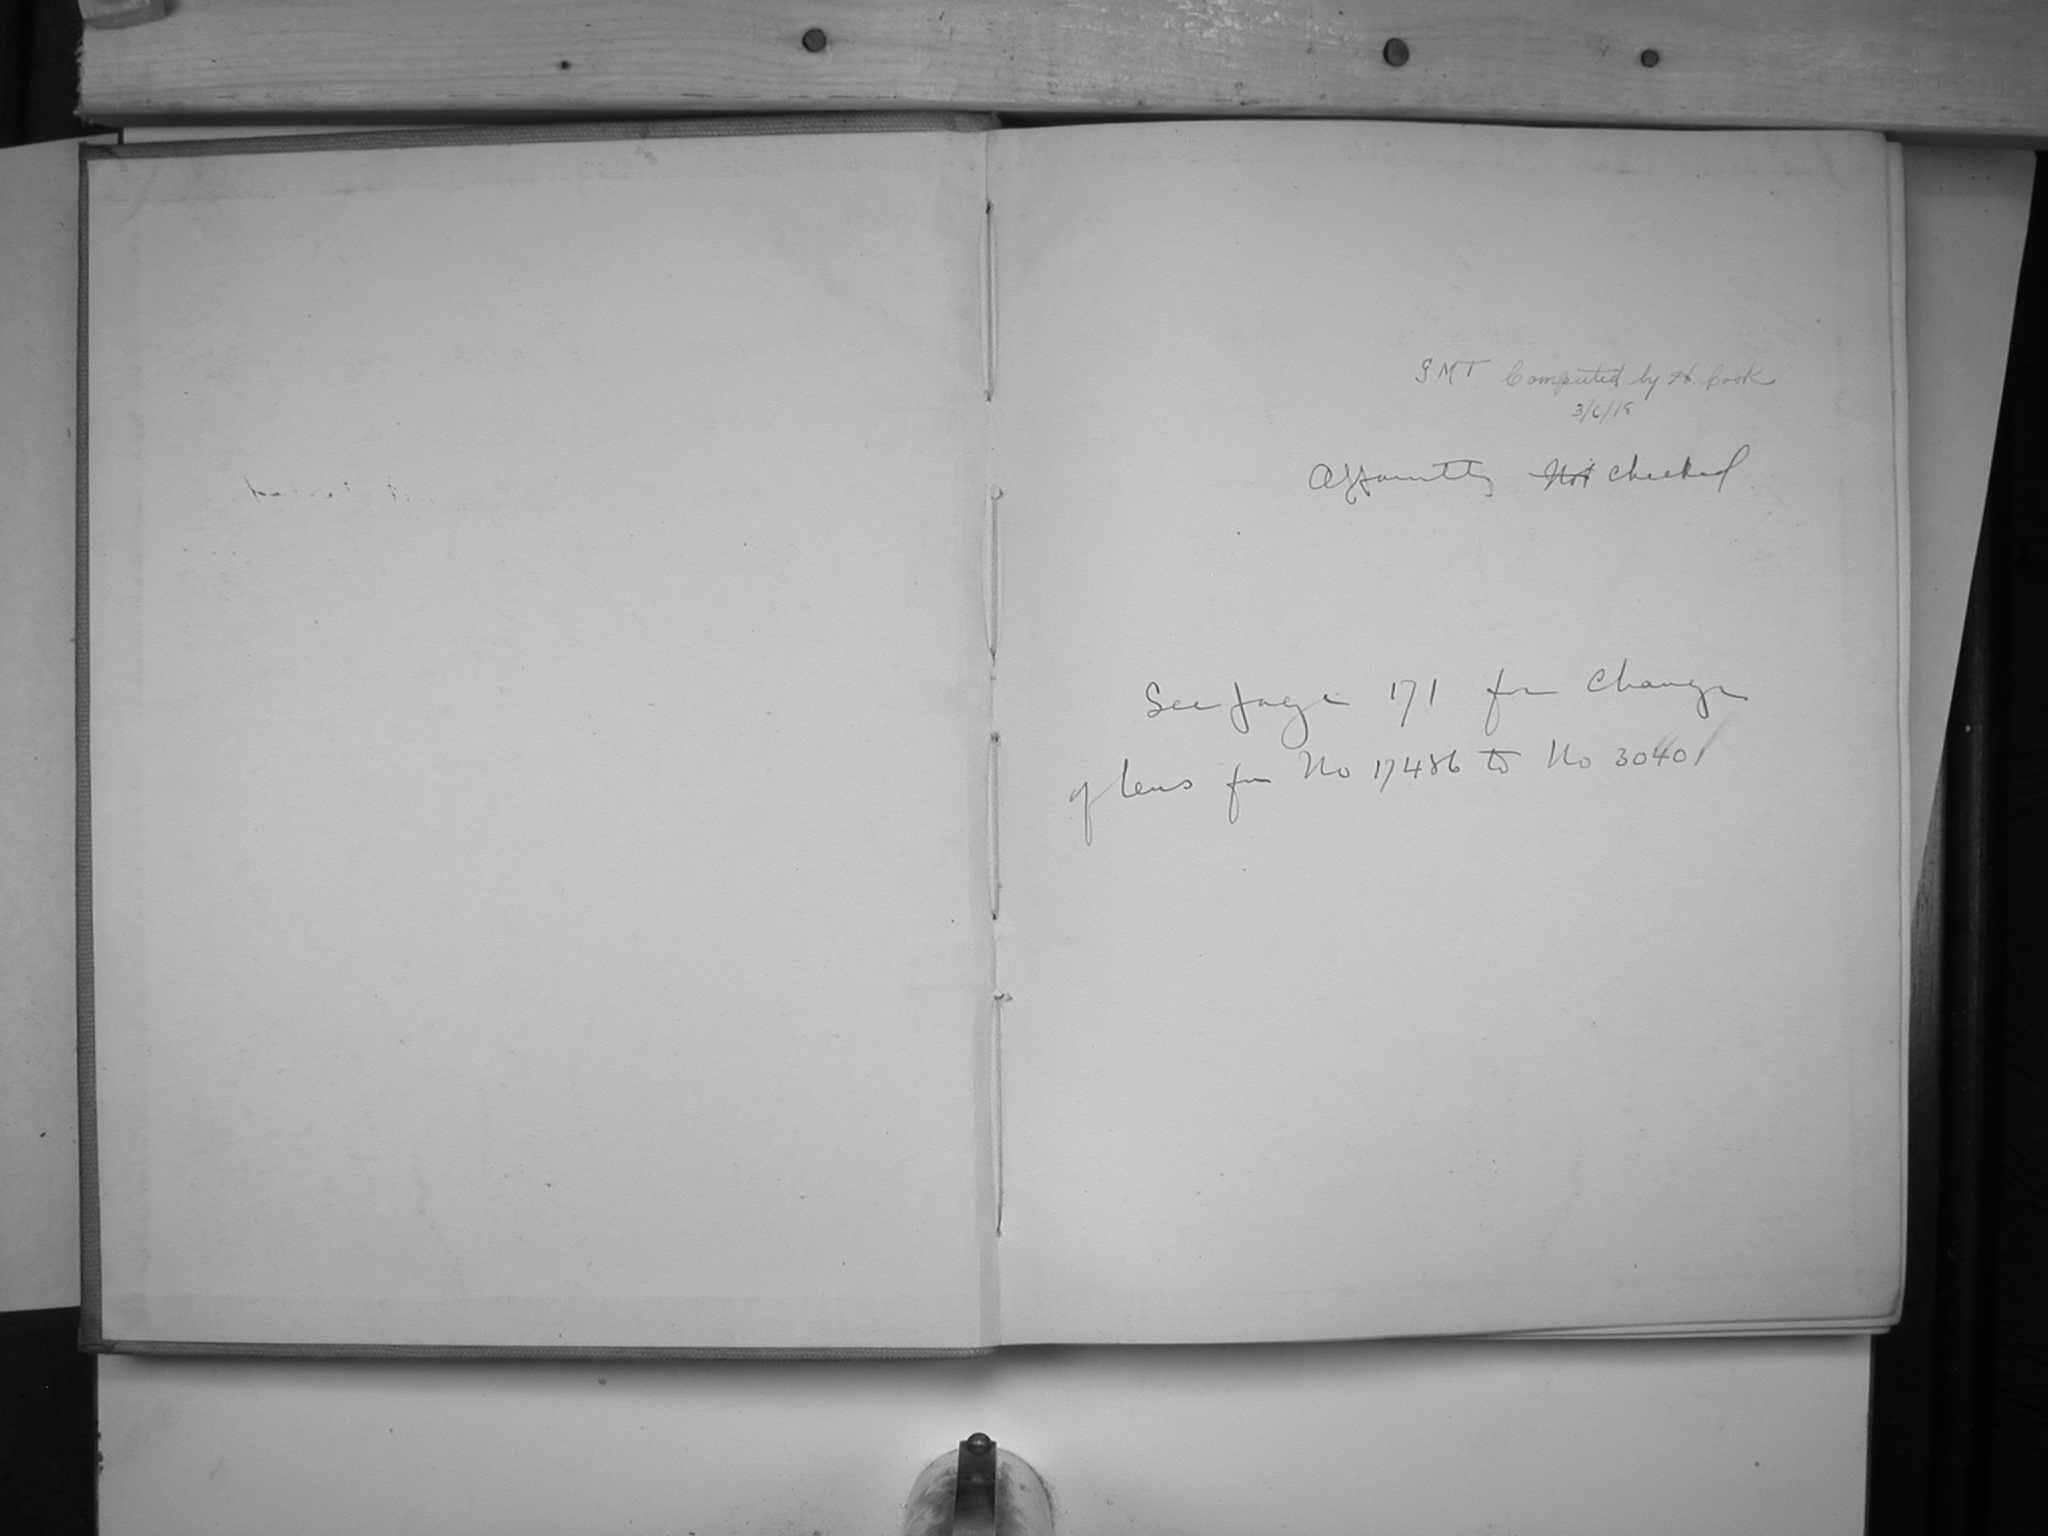 GMT Computed by H. Cook
3/6/18
Apparently Not checked
See page 171 for change
of lens from No 17486 to No 30401